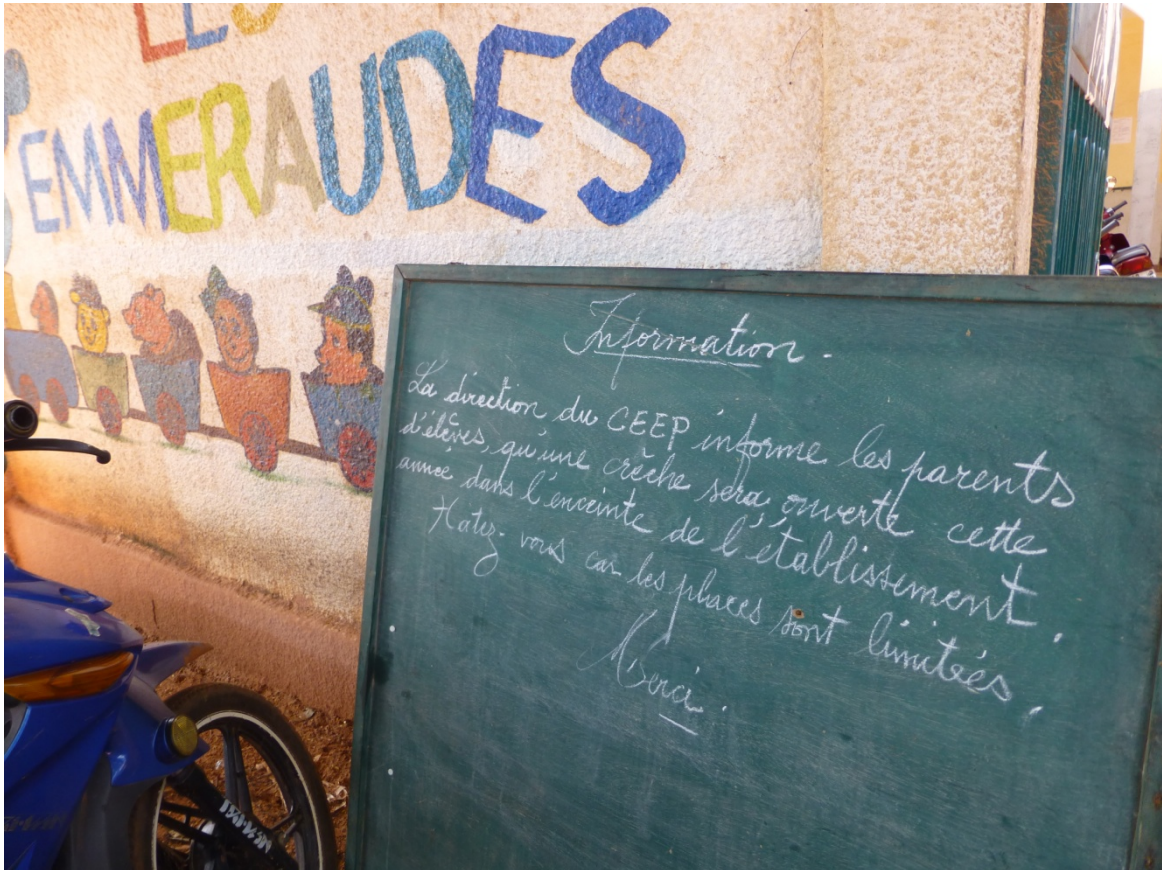 LES
EMMERAUDES
Information.
La direction du CEEP informe les parents
d'élèves, qu'une crèche sera ouverte cette
année dans l'enceinte de l'établissement.
Hatez-vous car les places sont limitées.
Merci.